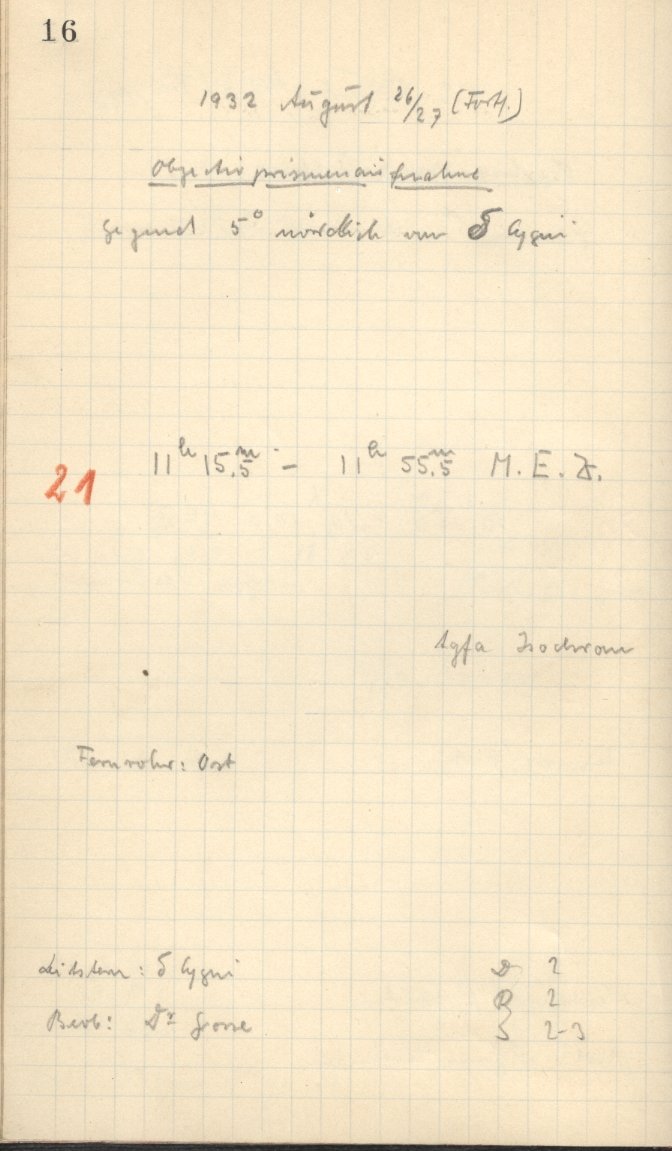 16
1932 August 26/27 (Forts.)
Objectivprismenaufnahme
Gegend 5° nördlich von δ Cygni
21 11h 15.m5 - 11h 55.m5 M.E.Z.
Agfa Isochrom
Fernrohr: Ost
Leitstern: δ Cygni
D 2
R 2
Beob: Dr Grosse
S 2-3